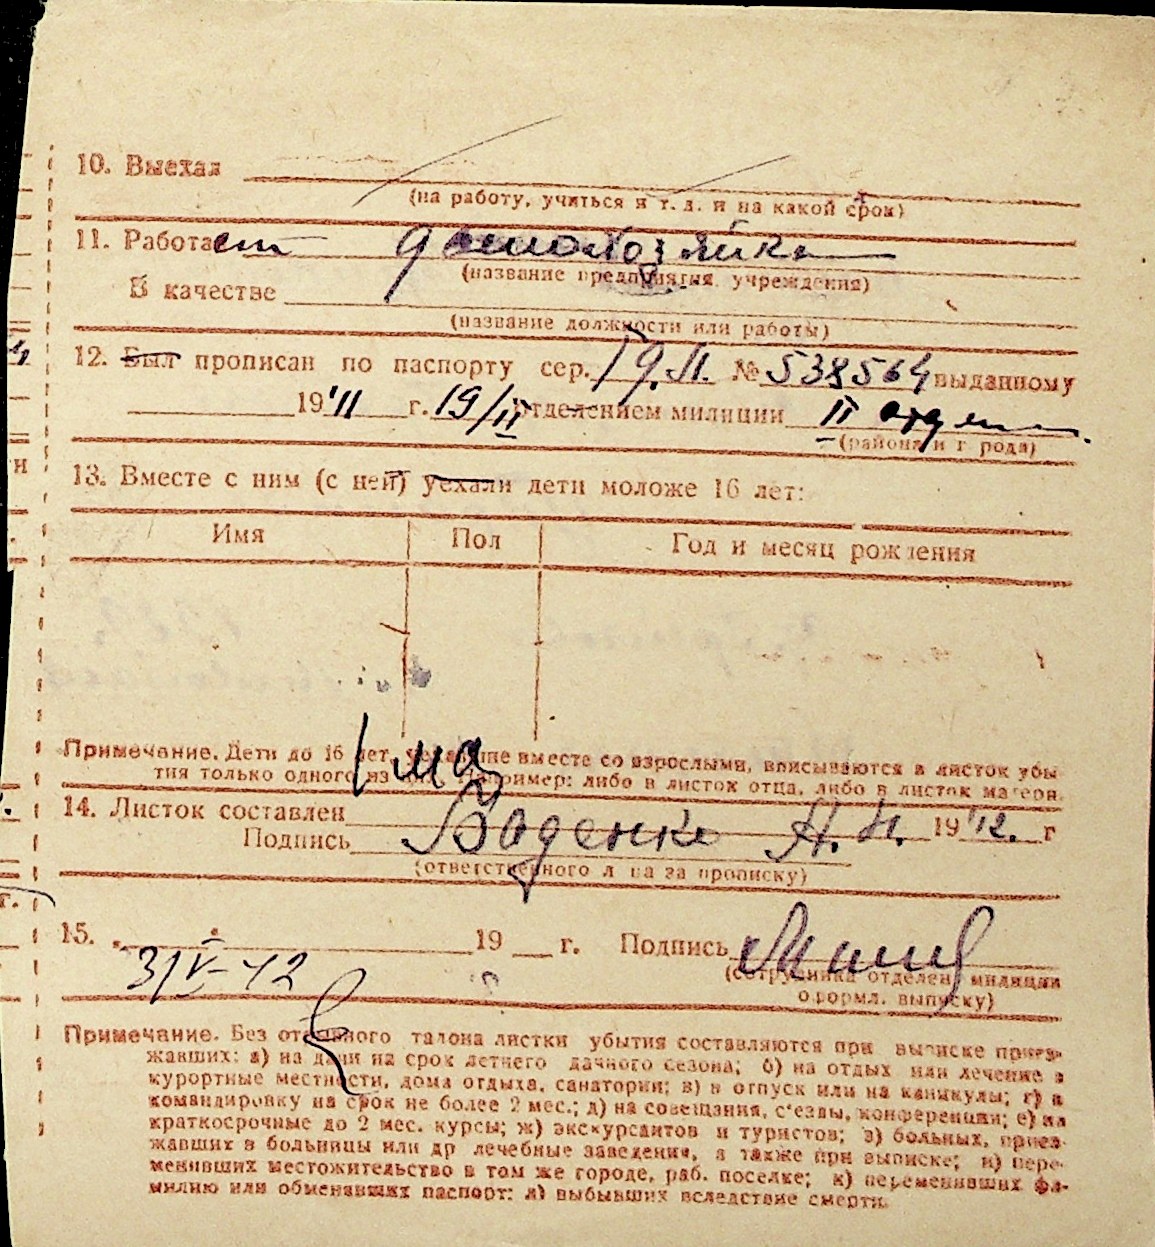 10. Выехал
(на работу, учиться и т. д. и на какой срок)
11. Работает домохозяйка
(название предприятия, учреждения)
В качестве
(название должности или работы)
12. Был прописан по паспорту сер. № 538564 выданному
19 г. 19/II отделением милиции II
(района и города)
13. Вместе с ним (с ней) уехали дети моложе 16 лет:
Имя Пол Год и месяц рождения
Примечание. Дети до 16 лет, уехавшие вместе со взрослыми, вписываются в листок убы-
тия только одного из них. Например: либо в листок отца, либо в листок матери.
1 ма
14. Листок составлен 1942. г
Подпись Боденко А. И.
(ответственного лица за прописку)
15. 19 г. Подпись
3/V-42
(сотрудника отделен. милиции
оформл. выписку)
Примечание. Без отрывного талона листки убытия составляются при выписке приез-
жавших: а) на дачи на срок летнего дачного сезона; б) на отдых или лечение в
курортные местности, дома отдыха, санатории; в) в отпуск или на каникулы; г) в
командировку на срок не более 2 мес.; д) на совещания, с'езды, конференции; е) на
краткосрочные до 2 мес. курсы; ж) экскурсантов и туристов; з) больных, приез-
жавших в больницы или др лечебные заведения, а также при выписке; и) пере-
менивших местожительство в том же городе, раб. поселке; к) переменивших фа-
милию или обменявших паспорт; л) выбывших вследствие смерти.